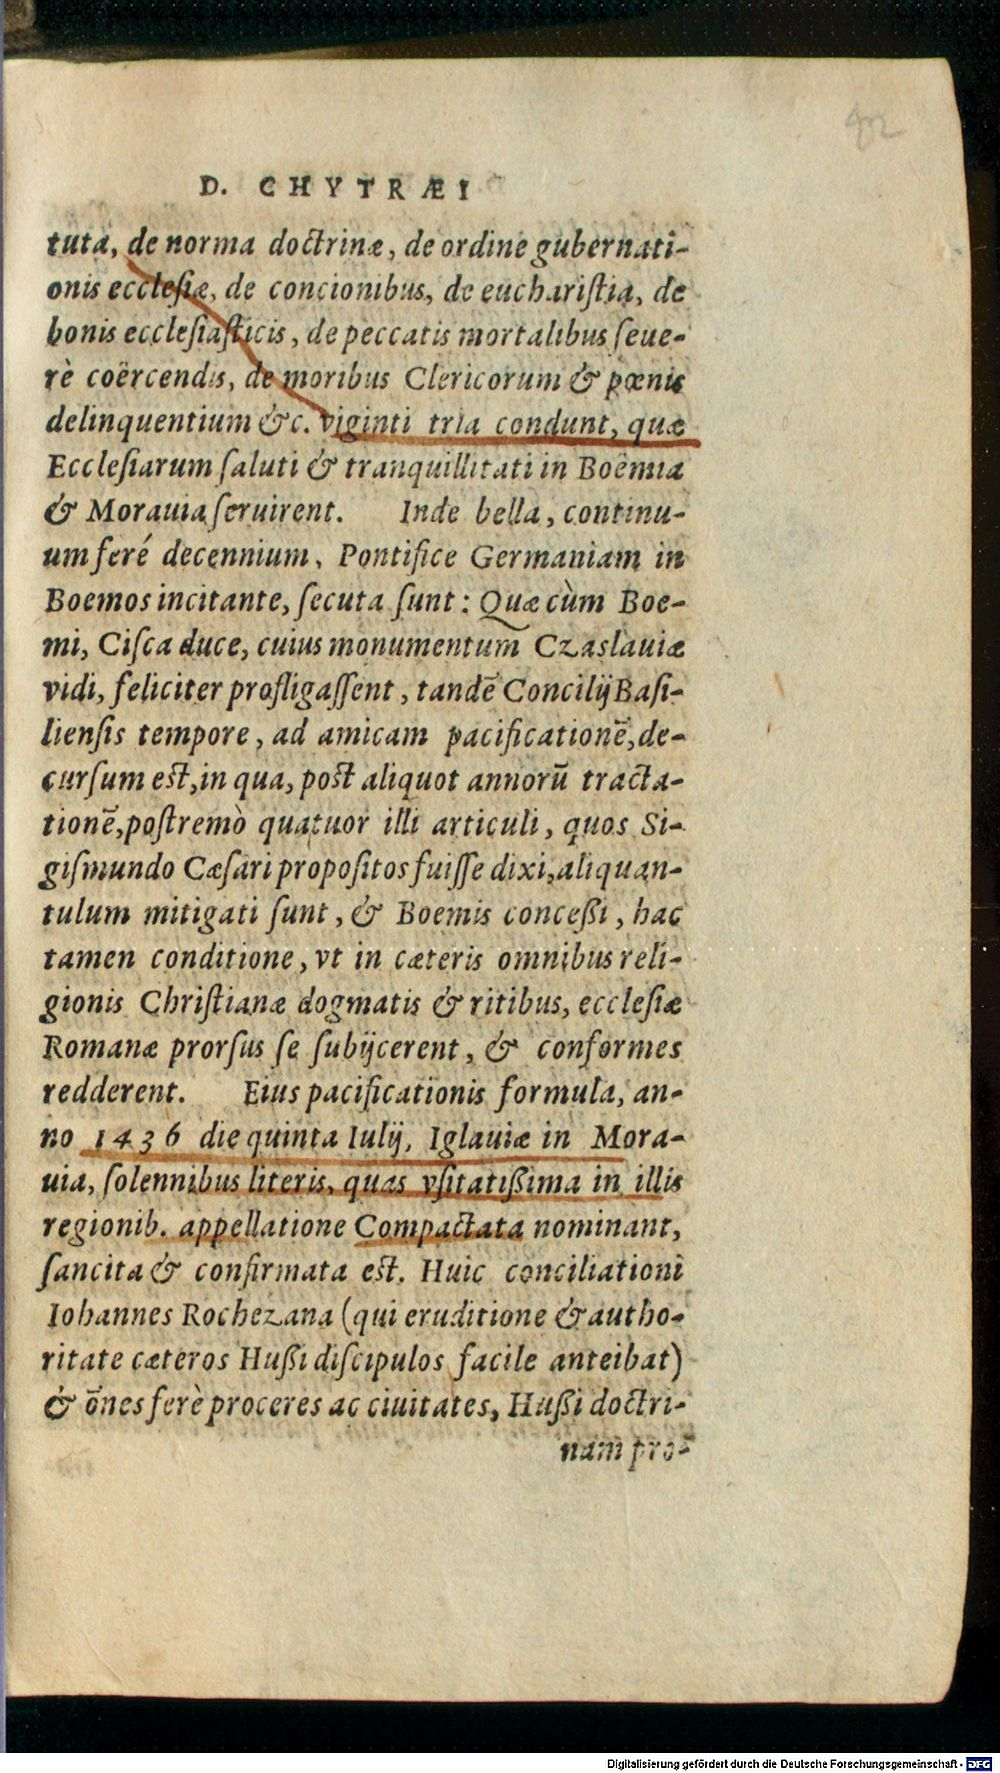 42
D. CHYTRÆI
tuta, de norma doctrinæ, de ordine gubernati-
onis ecclesiæ, de concionibus, de eucharistia, de
bonis ecclesiasticis, de peccatis mortalibus seue-
rè coërcendis, de moribus Clericorum & pœnis
delinquentium &c. viginti tria condunt, quæ
Ecclesiarum saluti & tranquillitati in Boëmia
& Morauia seruirent. Inde bella, continu-
um feré decennium, Pontifice Germaniam in
Boemos incitante, secuta sunt: Quæ cùm Boe-
mi, Cisca duce, cuius monumentum Czaslauiæ
vidi, feliciter profligassent, tandē Concilij Basi-
liensis tempore, ad amicam pacificationē, de-
cursum est, in qua, post aliquot annorū tracta-
tionē, postremò quatuor illi articuli, quos Si-
gismundo Cæsari propositos fuisse dixi, aliquan-
tulum mitigati sunt, & Boemis conceßi, hac
tamen conditione, vt in cæteris omnibus reli-
gionis Christianæ dogmatis & ritibus, ecclesiæ
Romanæ prorsus se subijcerent, & conformes
redderent. Eius pacificationis formula, an-
no 1436 die quinta Iulij, Iglauiæ in Mora-
uia, solennibus literis, quas vsitatißima in illis
regionib. appellatione Compactata nominant,
sancita & confirmata est. Huic conciliationi
Iohannes Rochezana (qui eruditione & autho-
ritate cæteros Hußi discipulos facile anteibat)
& ōnes ferè proceres ac ciuitates, Hußi doctri-
nam pro-
Digitalisierung gefördert durch die Deutsche Forschungsgemeinschaft - DFG